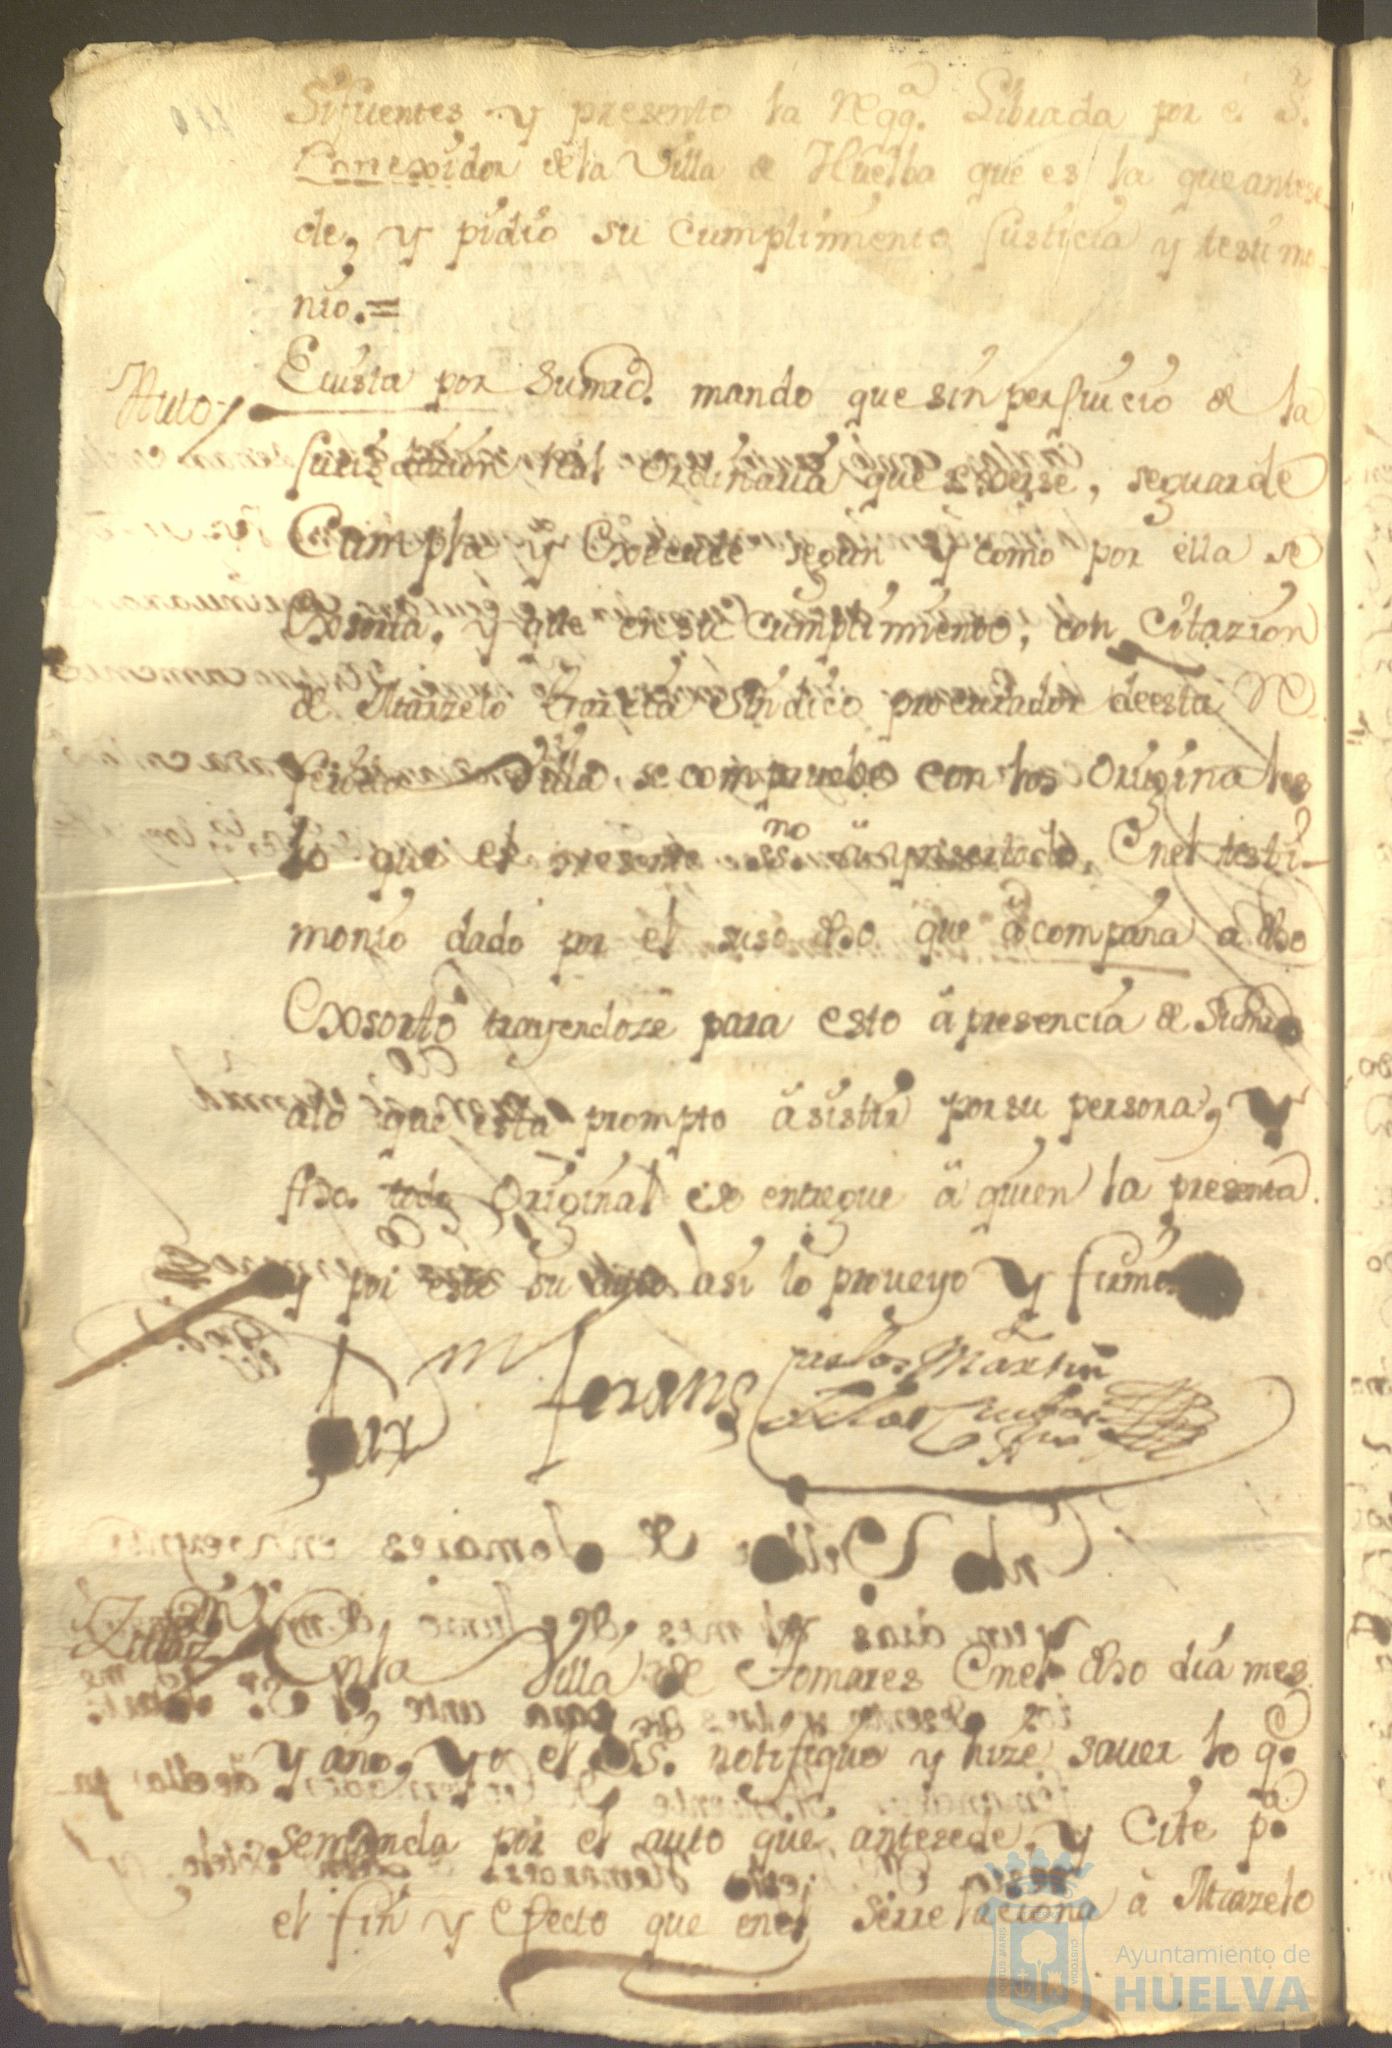 Sifuentes y presento la Reqq.ª Librada por el S.r
Correxidor de la Villa de Huelba que es la que antese
de, y pidio su cumplimiento Justicia y testimo
nio.=
Auto
Evista por Sumrd. mando que sin perjuicio de la
Jurisdizion Real Ordinaria que exerse, se guarde
Cumpla y Execute segun y como por ella se
Exsorta, y que en su Cumplimiento, con Citazion
de Marzelo Garcia Sindico procurador de esta
Villa, se compruebe con los Originales
lo que el presente ss.no a insertado, En el testi-
monio dado por el suso dho que acompaña a dho
Exsorto trayendoze para esto a presencia de Sumrd
alo que esta prompto a sistir por su persona, Y
fho. todo Original se entregue a quien la presenta.
y por este su auto asi lo proveyo Y firmo
Carlos Martin
En la Villa de Tomares En el dho dia mes
y año, Yo el SS.no notifique y hize saver lo q.e
se manda por el auto que antesede, y Cite p.a
el fin y Efecto que en el se rrelaciona a Marzelo
Ayuntamiento de
HUELVA